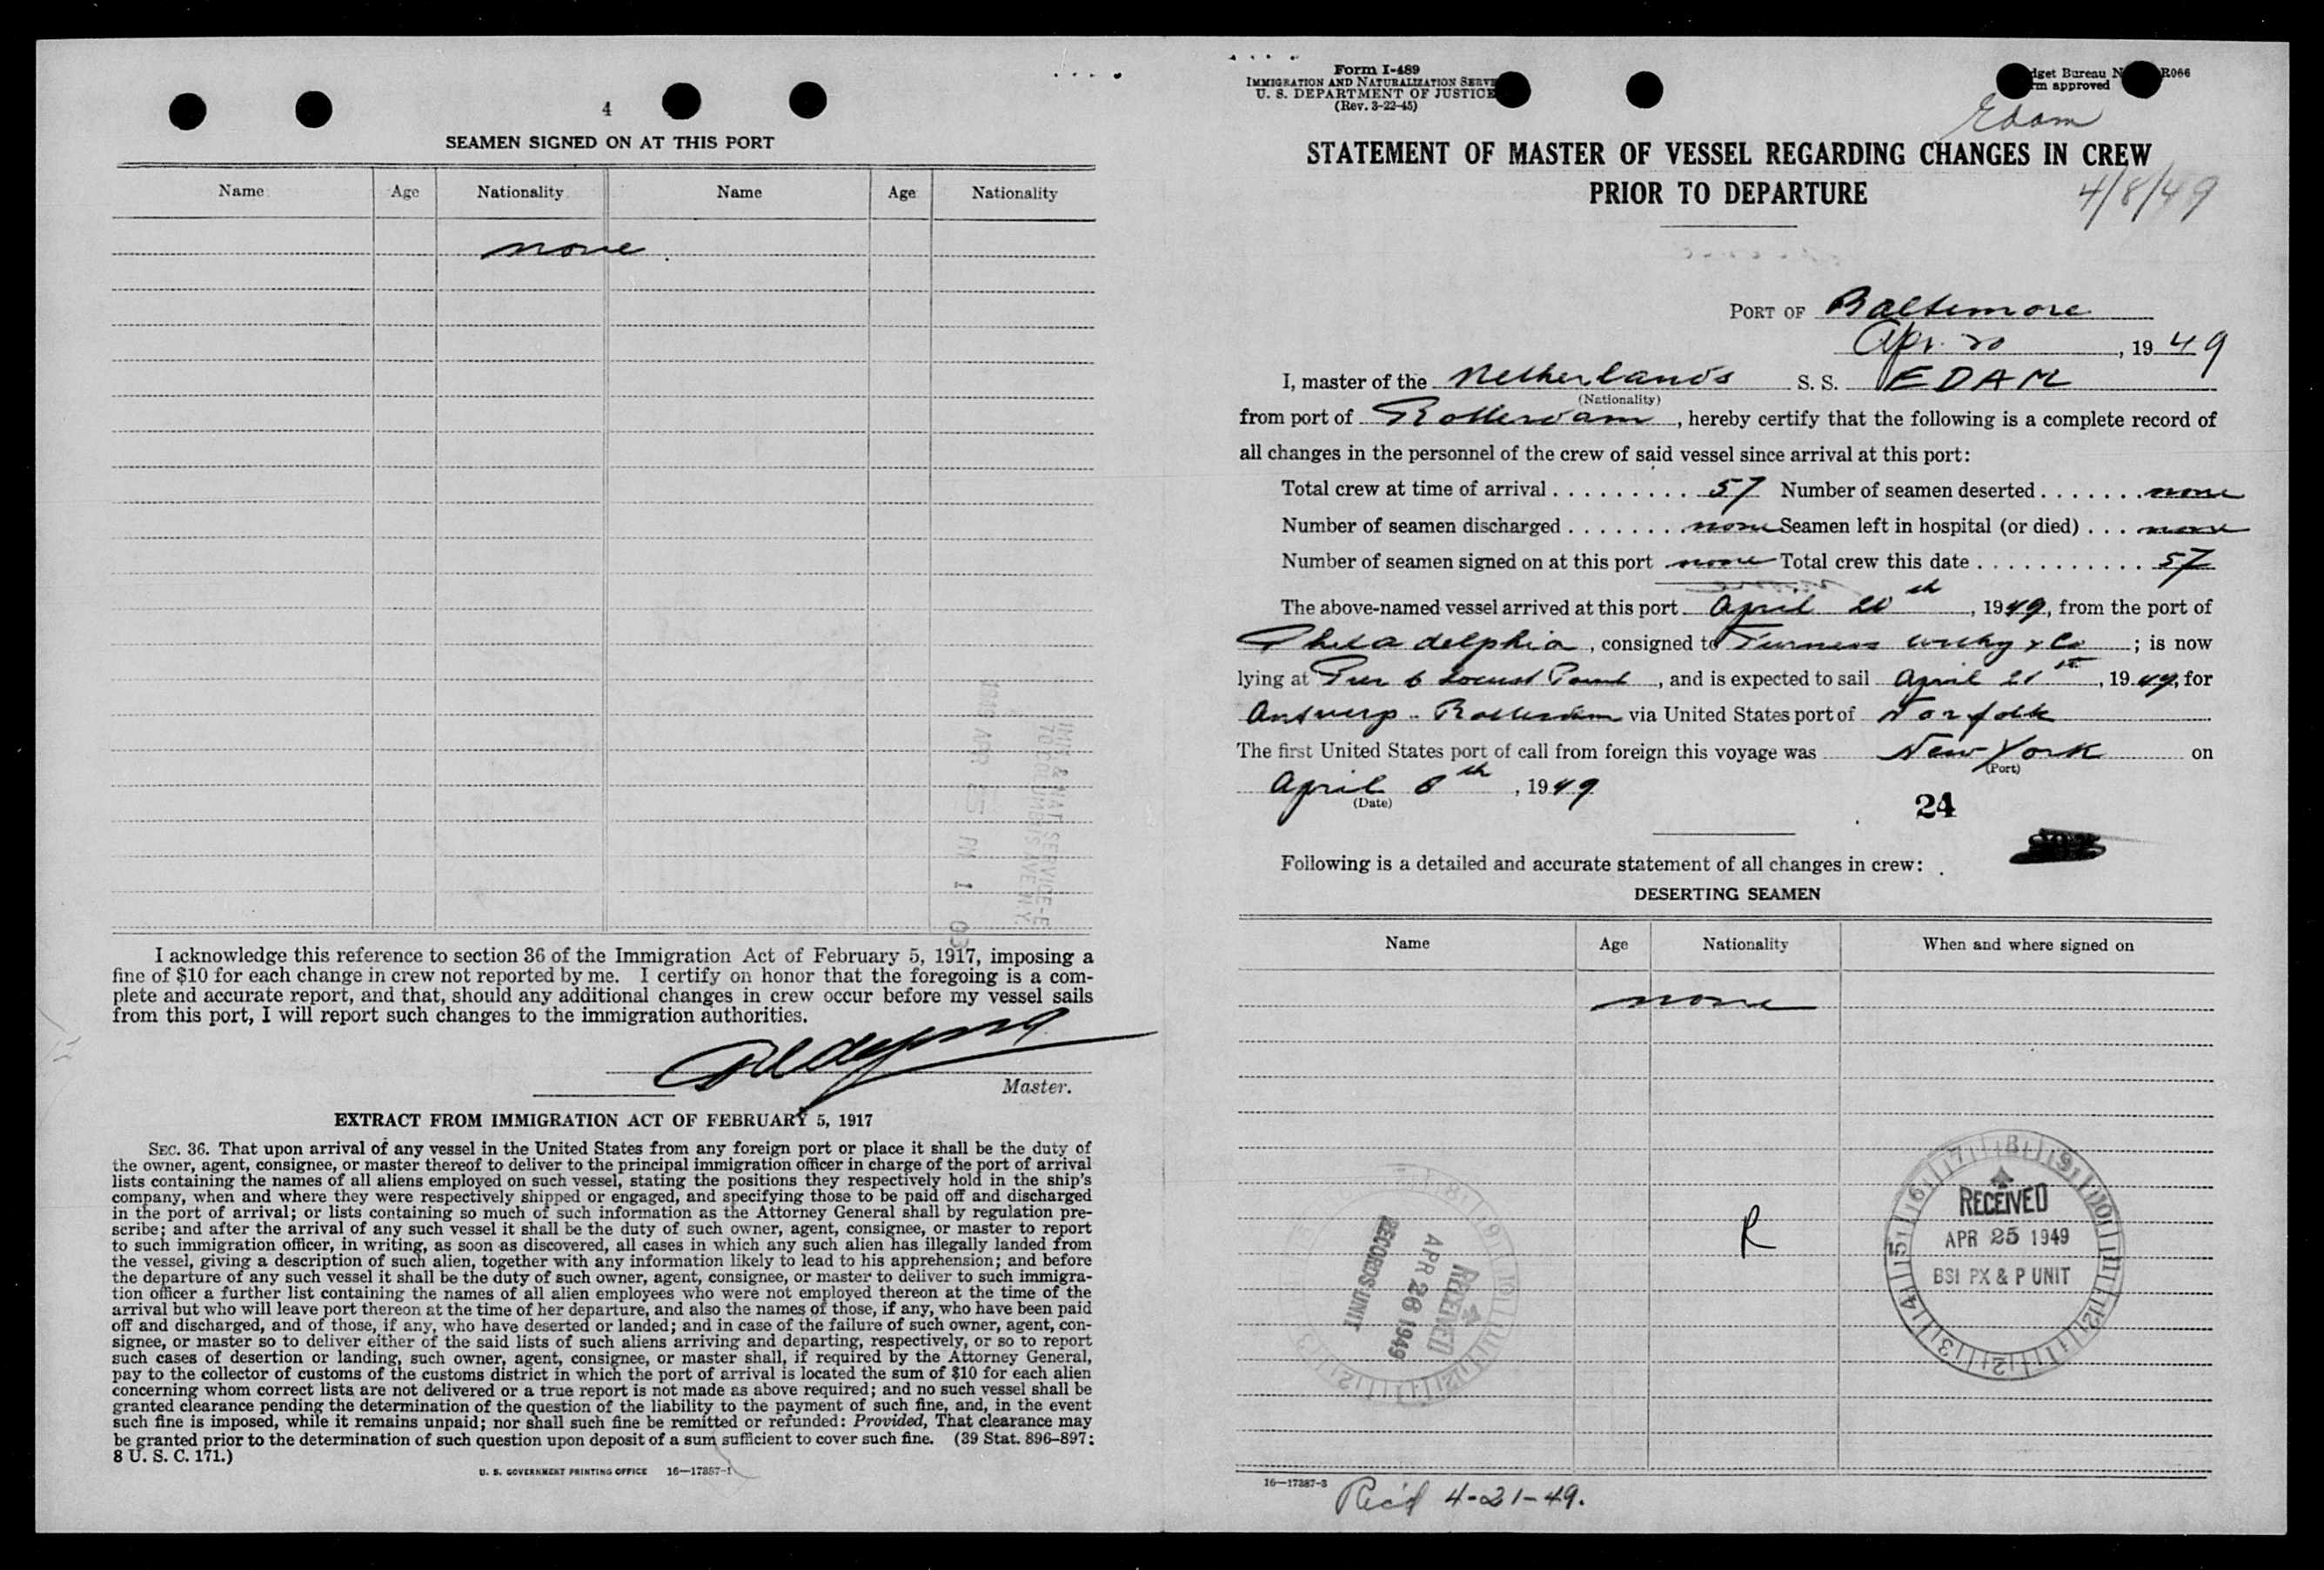 4
SEAMEN SIGNED ON AT THIS PORT
Name Age Nationality Name Age Nationality
none
I acknowledge this reference to section 36 of the Immigration Act of February 5, 1917, imposing a
fine of $10 for each change in crew not reported by me. I certify on honor that the foregoing is a com-
plete and accurate report, and that, should any additional changes in crew occur before my vessel sails
from this port, I will report such changes to the immigration authorities.
Master.
EXTRACT FROM IMMIGRATION ACT OF FEBRUARY 5, 1917
SEC. 36. That upon arrival of any vessel in the United States from any foreign port or place it shall be the duty of
the owner, agent, consignee, or master thereof to deliver to the principal immigration officer in charge of the port of arrival
lists containing the names of all aliens employed on such vessel, stating the positions they respectively hold in the ship's
company, when and where they were respectively shipped or engaged, and specifying those to be paid off and discharged
in the port of arrival; or lists containing so much of such information as the Attorney General shall by regulation pre-
scribe; and after the arrival of any such vessel it shall be the duty of such owner, agent, consignee, or master to report
to such immigration officer, in writing, as soon as discovered, all cases in which any such alien has illegally landed from
the vessel, giving a description of such alien, together with any information likely to lead to his apprehension; and before
the departure of any such vessel it shall be the duty of such owner, agent, consignee, or master to deliver to such immigra-
tion officer a further list containing the names of all alien employees who were not employed thereon at the time of the
arrival but who will leave port thereon at the time of her departure, and also the names of those, if any, who have been paid
off and discharged, and of those, if any, who have deserted or landed; and in case of the failure of such owner, agent, con-
signee, or master so to deliver either of the said lists of such aliens arriving and departing, respectively, or so to report
such cases of desertion or landing, such owner, agent, consignee, or master shall, if required by the Attorney General,
pay to the collector of customs of the customs district in which the port of arrival is located the sum of $10 for each alien
concerning whom correct lists are not delivered or a true report is not made as above required; and no such vessel shall be
granted clearance pending the determination of the question of the liability to the payment of such fine, and, in the event
such fine is imposed, while it remains unpaid; nor shall such fine be remitted or refunded: Provided, That clearance may
be granted prior to the determination of such question upon deposit of a sum sufficient to cover such fine. (39 Stat. 896–897;
8 U. S. C. 171.)
U. S. GOVERNMENT PRINTING OFFICE 16—17387-1
Form I-489
IMMIGRATION AND NATURALIZATION SERV
U. S. DEPARTMENT OF JUSTICE
(Rev. 3-22-45)
dget Bureau N R066
rm approved
Edam
STATEMENT OF MASTER OF VESSEL REGARDING CHANGES IN CREW
PRIOR TO DEPARTURE
4/8/49
PORT OF Baltimore
Apr. 20, 1949
I, master of the Netherlands S. S. EDAM
(Nationality)
from port of Rotterdam, hereby certify that the following is a complete record of
all changes in the personnel of the crew of said vessel since arrival at this port:
Total crew at time of arrival . . . . . . . . . 57 Number of seamen deserted . . . . . . . none
Number of seamen discharged . . . . . . . none Seamen left in hospital (or died) . . . none
Number of seamen signed on at this port none Total crew this date . . . . . . . . . . . . 57
The above-named vessel arrived at this port April 20th, 1949, from the port of
Philadelphia, consigned to Furness Withy & Co; is now
lying at Pier 6 Locust Point, and is expected to sail April 21st, 1949, for
Antwerp - Rotterdam via United States port of Norfolk
The first United States port of call from foreign this voyage was New York on
(Port)
April 8th, 1949
(Date)
24
Following is a detailed and accurate statement of all changes in crew:
DESERTING SEAMEN
Name Age Nationality When and where signed on
none
R
RECEIVED
APR 25 1949
BSI PX & P UNIT
RECEIVED
APR 26 1949
RECORDS UNIT
16—17387-3
Rec'd 4-21-49.